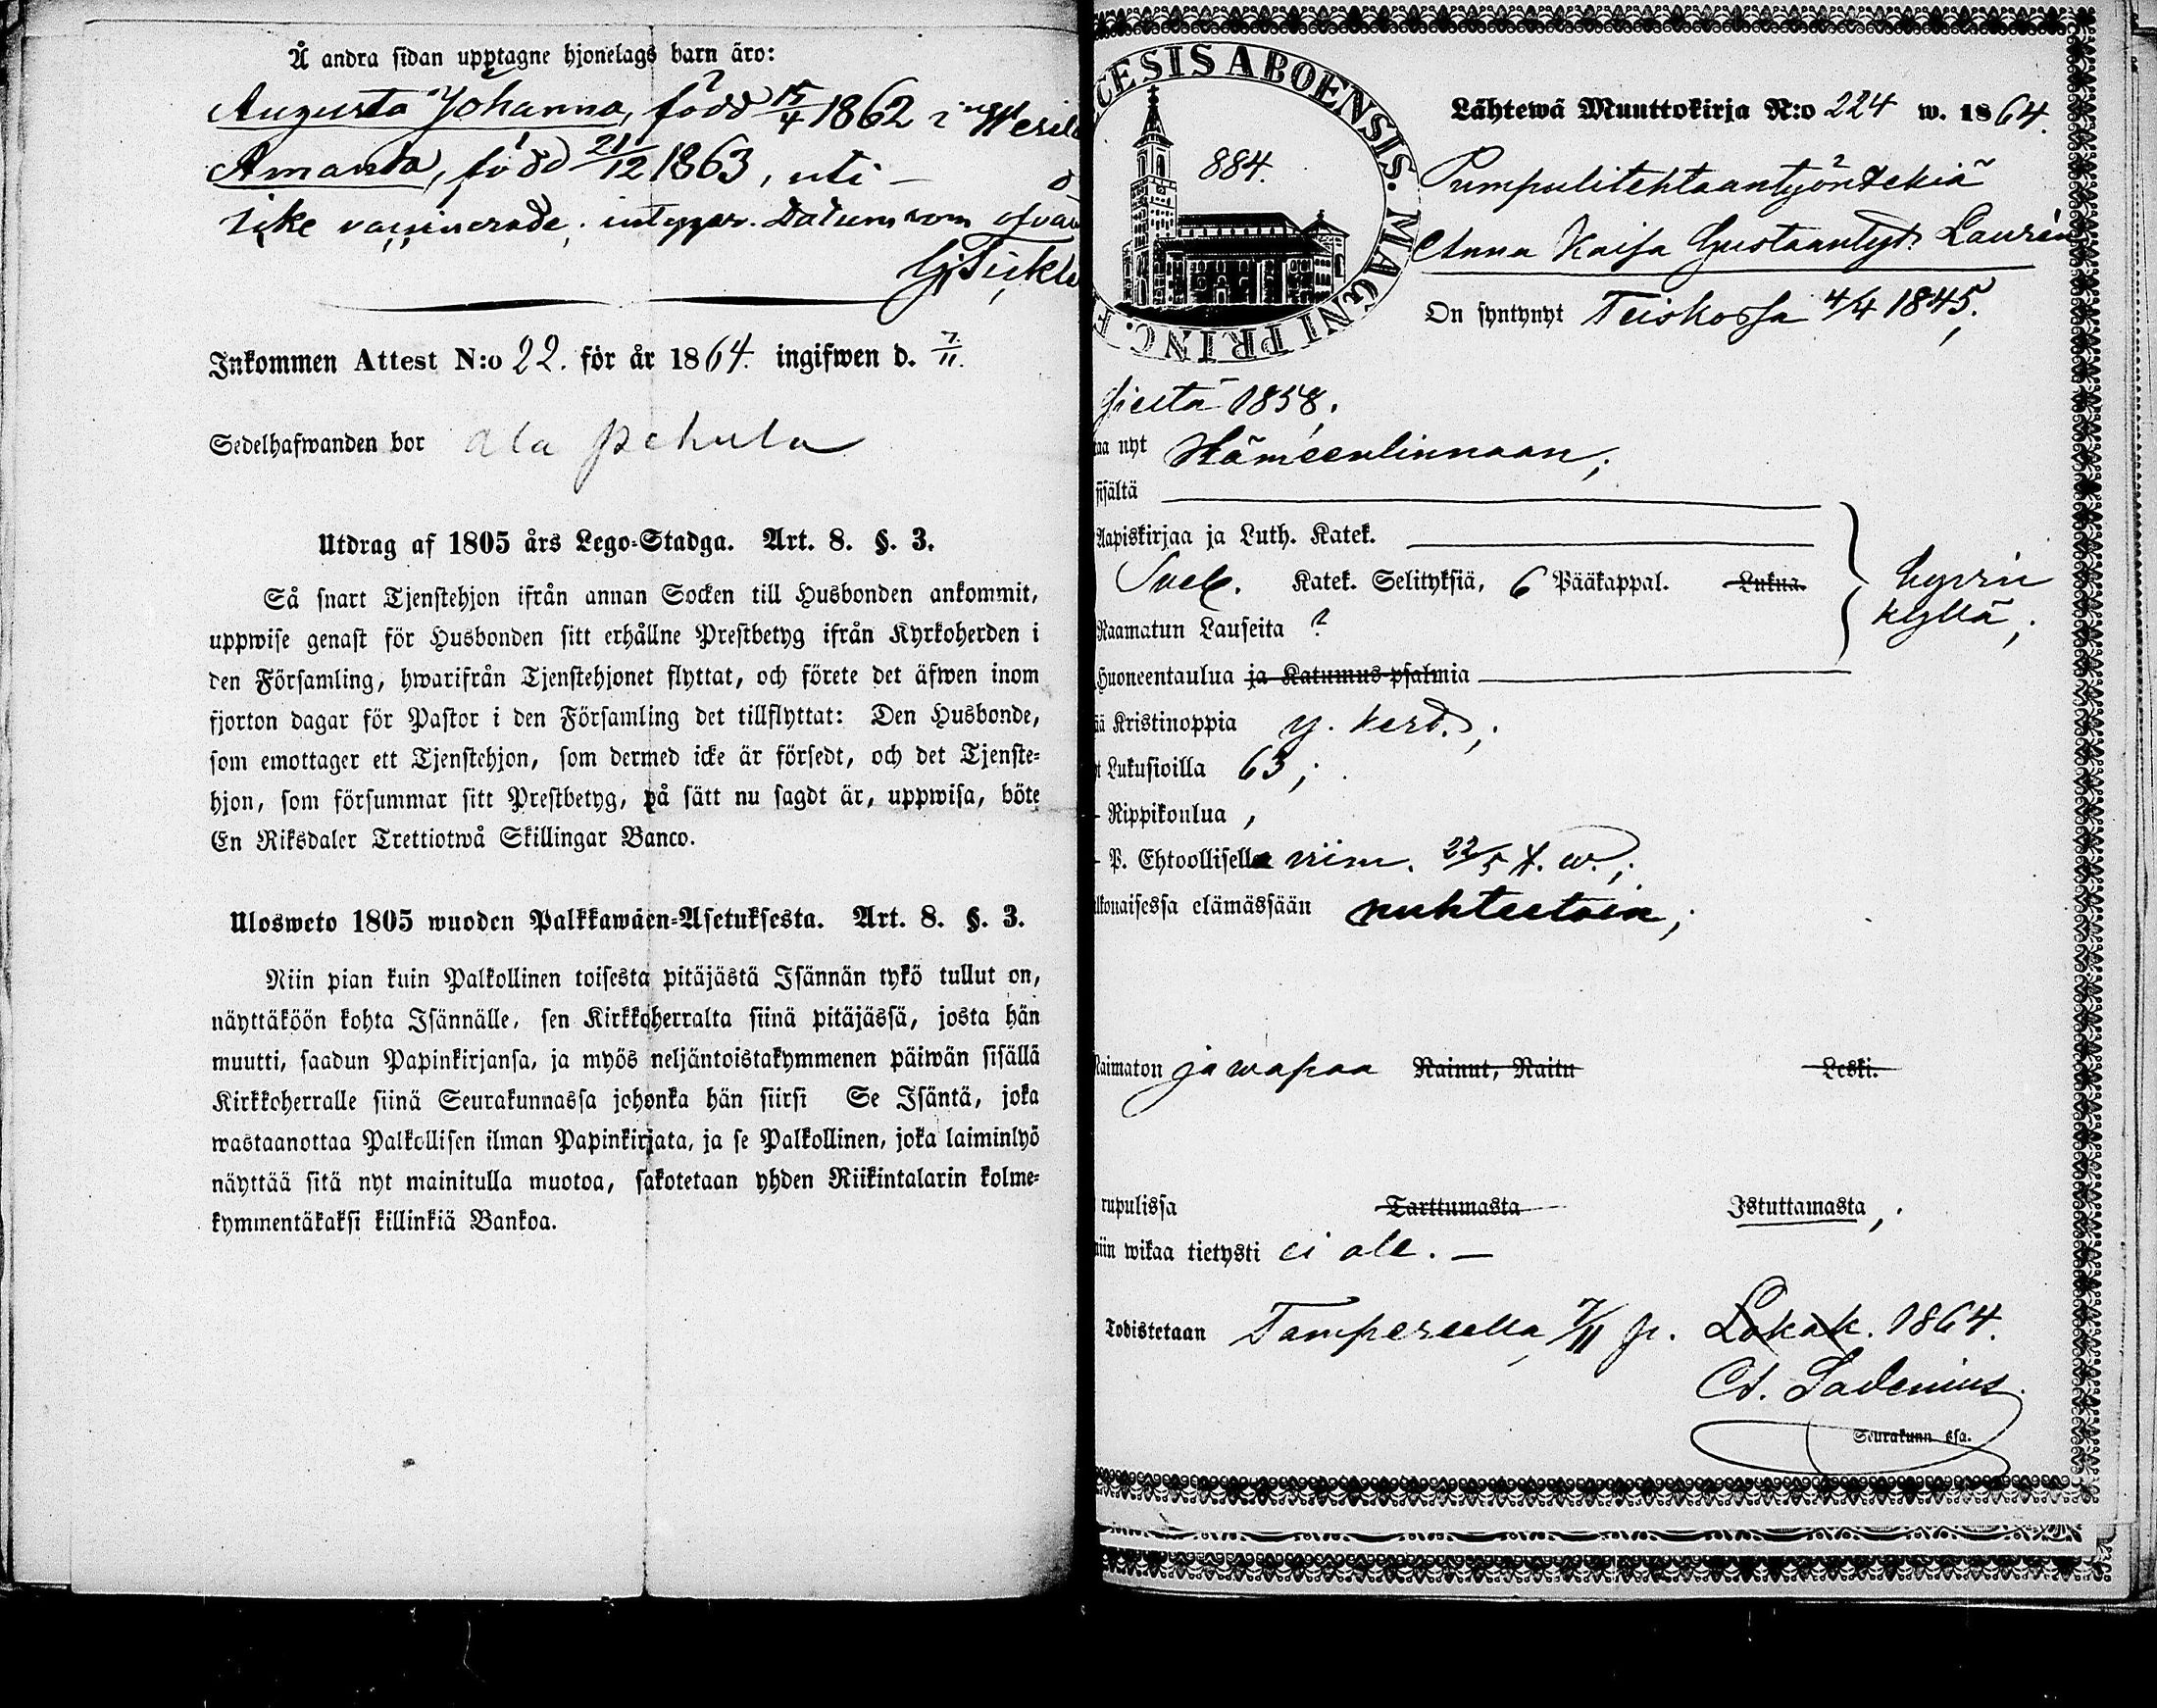 Å andra sidan upptagne hjonelags barn äro:
Augusta Johanna, född 15/4 1862 i Wesila
Amanda, född 21/12 1863, uti —
icke vaccinerade; Datum som ofvan
Inkommen Attest N:o 22. för år 1864. ingifwen d. 7/11.
Sedelhafwanden bor Ala Pehula
Utdrag af 1805 års Lego-Stadga. Art. 8. §. 3.
Så snart Tjenstehjon ifrån annan Socken till Husbonden ankommit,
uppwise genast för Husbonden sitt erhållne Prestbetyg ifrån Kyrkoherden i
den Församling, hwarifrån Tjenstehjonet flyttat, och förete det äfwen inom
fjorton dagar för Pastor i den Församling det tillflyttat: Den Husbonde,
som emottager ett Tjenstehjon, som dermed icke är försedt, och det Tjenste-
hjon, som försummar sitt Prestbetyg, på sätt nu sagdt är, uppwisa, böte
En Riksdaler Trettiotwå Skillingar Banco.
Ulosweto 1805 wuoden Palkkawäen-Asetuksesta. Art. 8. §. 3.
Niin pian kuin Palkollinen toisesta pitäjästä Isännän tykö tullut on,
näyttäköön kohta Isännälle, sen Kirkkoherralta siinä pitäjässä, josta hän
muutti, saadun Papinkirjansa, ja myös neljäntoistakymmenen päiwän sisällä
Kirkkoherralle siinä Seurakunnassa johonka hän siirsi Se Isäntä, joka
wastaanottaa Palkollisen ilman Papinkirjata, ja se Palkollinen, joka laiminlyö
näyttää sitä nyt mainitulla muotoa, sakotetaan yhden Riikintalarin kolme-
kymmentäkaksi killinkiä Bankoa.
CESIS ABOENSIS. MAGNI PRINC. F
884.
Lähtewä Muuttokirja N:o 224 w. 1864.
Pumpulitehtaantyöntekiä
Anna Kaisa Gustaantyt. Laurén
On syntynyt Teiskossa 4/4 1845;
sieltä 1858;
taa nyt Hämeenlinnaan;
sisältä
Aapiskirjaa ja Luth. Katek.
Svel. Katek. Selityksiä, 6 Pääkappal. Lukua.
hyvin
kyllä;
Raamatun Lauseita ?
Huoneentaulua ja Katumus-psalmia
Kristinoppia y. kerd.;
Lukusioilla 63;
- Rippikoulua,
- P. Ehtoollisella viim. 22/5 t. w.;
lkonaisessa elämässään nuhteetoin;
Naimaton ja wapaa Nainut, Naitu Leski.
rupulissa Tarttumasta Istuttamasta,
niin wikaa tietysti ei ole. —
Todistetaan Tampereella, 7/11 p. Lokak. 1864.
Ct. Sadenius.
Seurakunn esa.